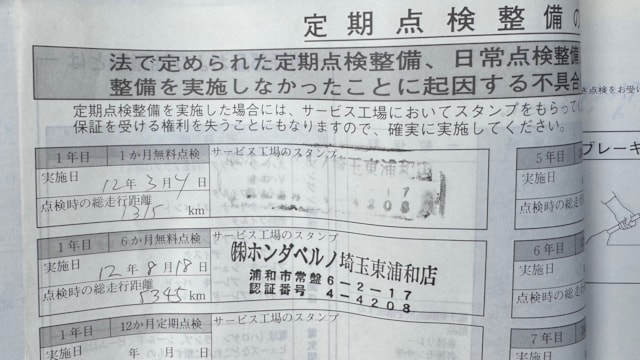 定期点検整備の
法で定められた定期点検整備、日常点検整備
整備を実施しなかったことに起因する不具合
定期点検整備を実施した場合には、サービス工場においてスタンプをもらってく
保証を受ける権利を失うことにもなりますので、確実に実施してください。
1年目 1か月無料点検 サービス工場のスタンプ
埼玉東浦和店
実施日
12年3月4日
17
点検時の総走行距離
4208
1315 km
1年目 6か月無料点検 サービス工場のスタンプ
㈱ホンダベルノ埼玉東浦和店
実施日
12年8月18日
浦和市常盤6-2-17
点検時の総走行距離
認証番号4-4208
5345 km
1年目 12か月定期点検 サービス工場のスタンプ
実施日
年 月 日
5年目
ブレーキ
実施日
点検時
6年目
実施日
点検時
7年目